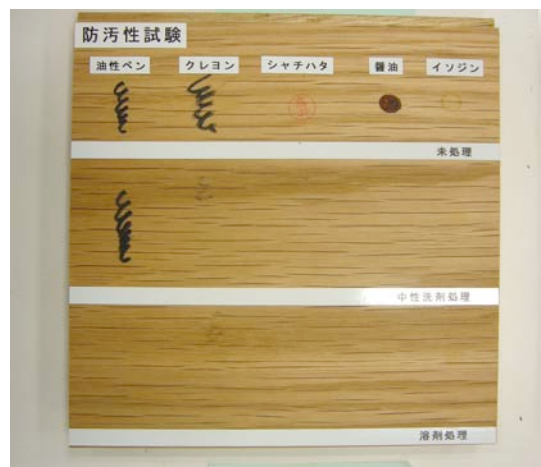 防汚性試験
油性ペン クレヨン シャチハタ 醤油 イソジン
未処理
中性洗剤処理
溶剤処理